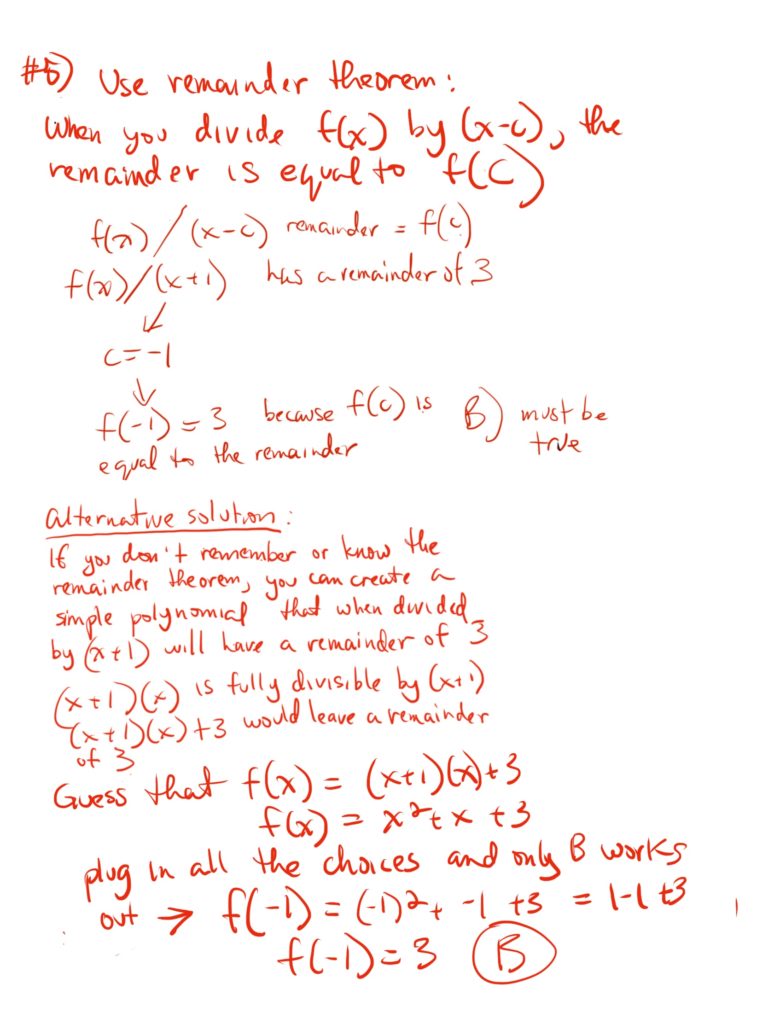 #5) Use remainder theorem:
When you divide f(x) by (x-c), the
remainder is equal to f(c)
f(x)/(x-c) remainder = f(c)
f(x)/(x+1) has a remainder of 3
c=-1
f(-1)=3 because f(c) is
equal to the remainder
B) must be
true
alternative solution:
If you don't remember or know the
remainder theorem, you can create a
simple polynomial that when divided
by (x+1) will have a remainder of 3
(x+1)(x) is fully divisible by (x+1)
(x+1)(x)+3 would leave a remainder
of 3
Guess that f(x) = (x+1)(x)+3
f(x) = x²+x+3
plug in all the choices and only B works
out → f(-1)=(-1)²+ -1 +3 = 1-1+3
f(-1)=3 B